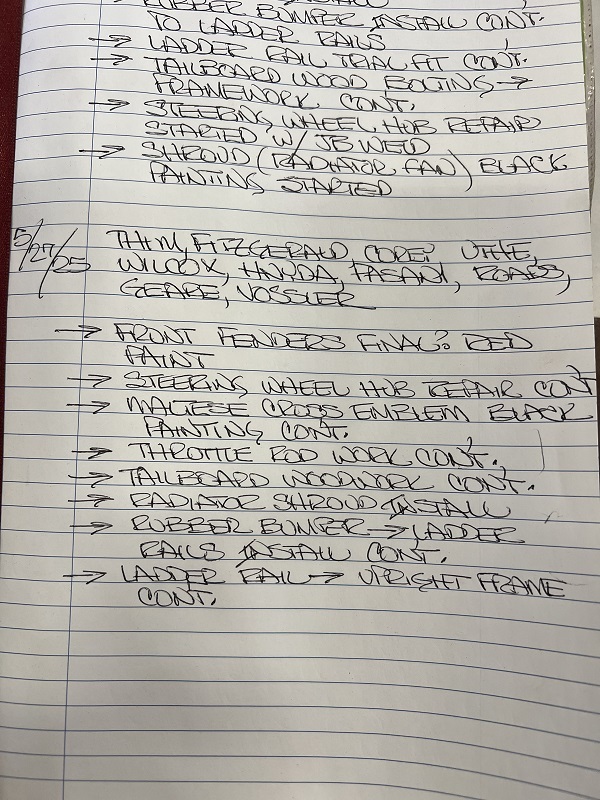 RUBBER BUMPER INSTALL CONT.
TO LADDER RAILS
→ LADDER RAIL TRIAL FIT CONT.
→ TAILBOARD WOOD BOLTING →
FRAMEWORK CONT.
→ STEERING WHEEL HUB REPAIR
STARTED W/ JB WELD
→ SHROUD (RADIATOR FAN) BLACK
PAINTING STARTED
5/27/25
THIM, FITZGERALD, COREY UTHE,
WILCOX, HNYDA, FASANI, ROADS,
GEARE, VOSSLER
→ FRONT FENDERS FINAL? RED
PAINT
→ STEERING WHEEL HUB REPAIR CONT
→ MALTESE CROSS EMBLEM BLACK
PAINTING CONT.
→ THROTTLE ROD WORK CONT.
→ TAILBOARD WOODWORK CONT.
→ RADIATOR SHROUD INSTALL
→ RUBBER BUMPER → LADDER
RAILS INSTALL CONT.
→ LADDER RAIL → UPRIGHT FRAME
CONT.